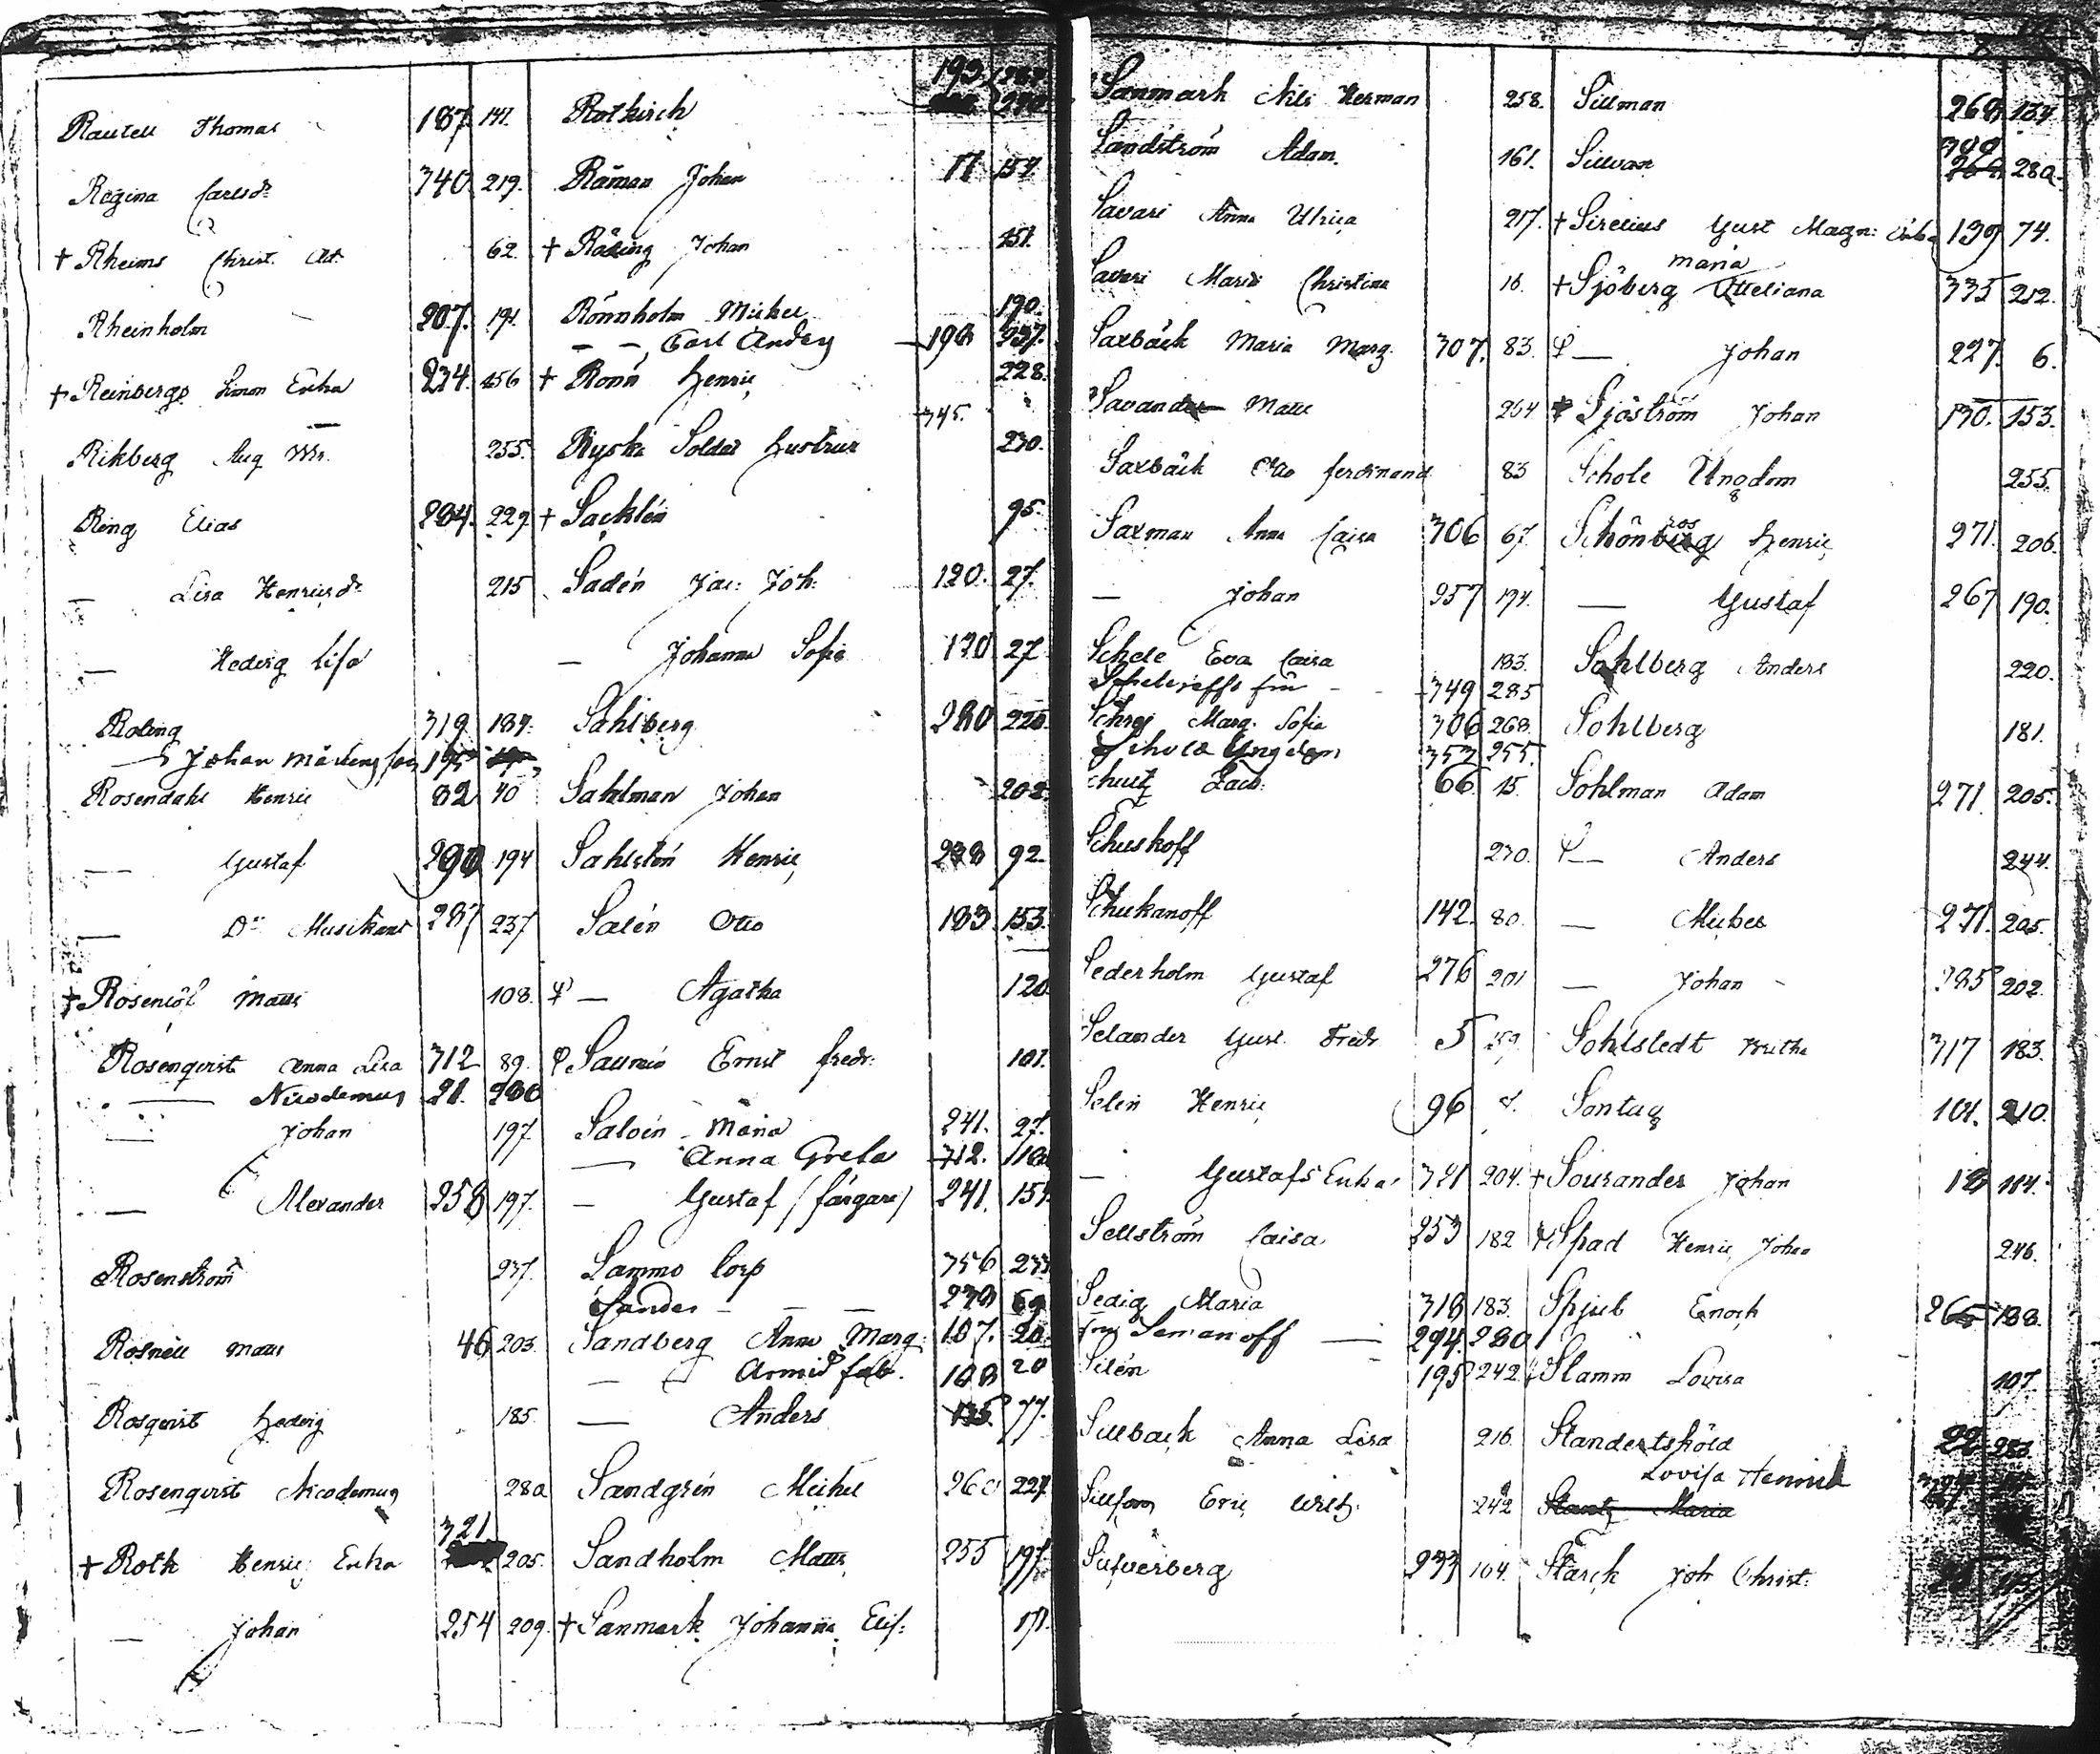 Rautell Thomas 187. 141.
Regina Carlsdr 340 219.
† Rheims Christ. 62.
Rheinholm 207. 191.
† Reinbergs Simon Enka 234. 156
Rikberg Aug. 255.
Ring Elias 284. 229
— Lisa Henricsdr 215
— Hedvig Lisa
Roling 319 187.
— Johan Mårtens son 195
Rosendahl Henric 82 40
— Gustaf 290 194
— Do Musikant 287 237
† Rosenlöf Matts 108.
Rosenqvist Anna Lisa 312 89.
— Nicodemus 21. 280
— Johan 197.
— Alexander 258 197.
Rosenström 237.
Rosnell Matts 46 203.
Rosqvist Hedvig 185.
Rosenqvist Nicodemus 280
† Roth Henric Enka 321 205.
— Johan 254 209.
Rotkirch 193
Råman Johan 11 157.
† Räsing Johan 151.
Rönnholm Michel 190.
— — Carl Anders 190 237.
† Rönn Henric 228.
345.
Ryska Soldat Hustrur 230.
† Sacklén 95.
Sadén Jac: Joh: 120. 27.
— Johanna Sofia 120 27
Sahlberg 280 220.
Sahlman Johan 202.
Sahlstén Henric 238 92.
Salén Otto 183 153.
— Agatha 120
Ernst Fredr: 101.
Saloin Maria 241. 27.
— Anna Greta 312. 110
— Gustaf (färgare) 241. 157
Sammo Corp 356 233
Sander — — — 239 69
Sandberg Anna Marg. 107. 20.
— Arvid Fab. 108 20
— Anders 135. 77.
Sandgrén Michel 260 227
Sandholm Matts 255 197.
† Sanmark Johanna Elis: 171.
Sanmark Nils Herman 258.
Sandström Adam. 161.
Savari Anna Ulrica 217.
Savari Maria Christina 16.
Saxbäck Maria Marg. 307. 83.
Savander Matts 264
Saxbäck Otto Ferdinand 83
Saxman Anna Caisa 306 67.
— Johan 257 194.
Schele Eva Caisa 183.
fru — 349 285
Schrej Marg. Sofia 306 268.
Schola Ungdom 353 255.
Schultz Zach. 66. 15.
Schuskoff 230.
Schukanoff 142. 80.
Sederholm Gustaf 276 201
Selander Gust. Fredr 5 59
Selin Henric 96
— Gustafs Enka 321 204.
Sellström Caisa 253 182
Sedig Maria 318 183.
fru Semanoff — 294. 280
Silén 195 242
Sillback Anna Lisa 216.
Eric 242
Silfverberg 233 104.
Sillman 268 134
Sillvan 300 280.
† Sirelius Gust Magn: Enka 139 74.
† Sjöberg Maria Ulleliana 335 212.
— Johan 227. 6.
Sjöström Johan 130. 153.
Schole Ungdom 255.
Schönros Henric 271. 206.
— Gustaf 267 190.
Sahlberg Anders 220.
Sohlberg 181.
Sohlman Adam 271. 205.
— Anders 244.
— Michel 271. 205.
— Johan 285 202.
Sohlstedt Britha 317 183.
Sontag 101. 210.
† Sourander Johan 18 114.
Spad Henric Johan 246.
Spjut Enoch 265 188.
Stamm Lovisa 107.
Standertsköld 22
Lovisa
Maria
Starck Joh Christ.